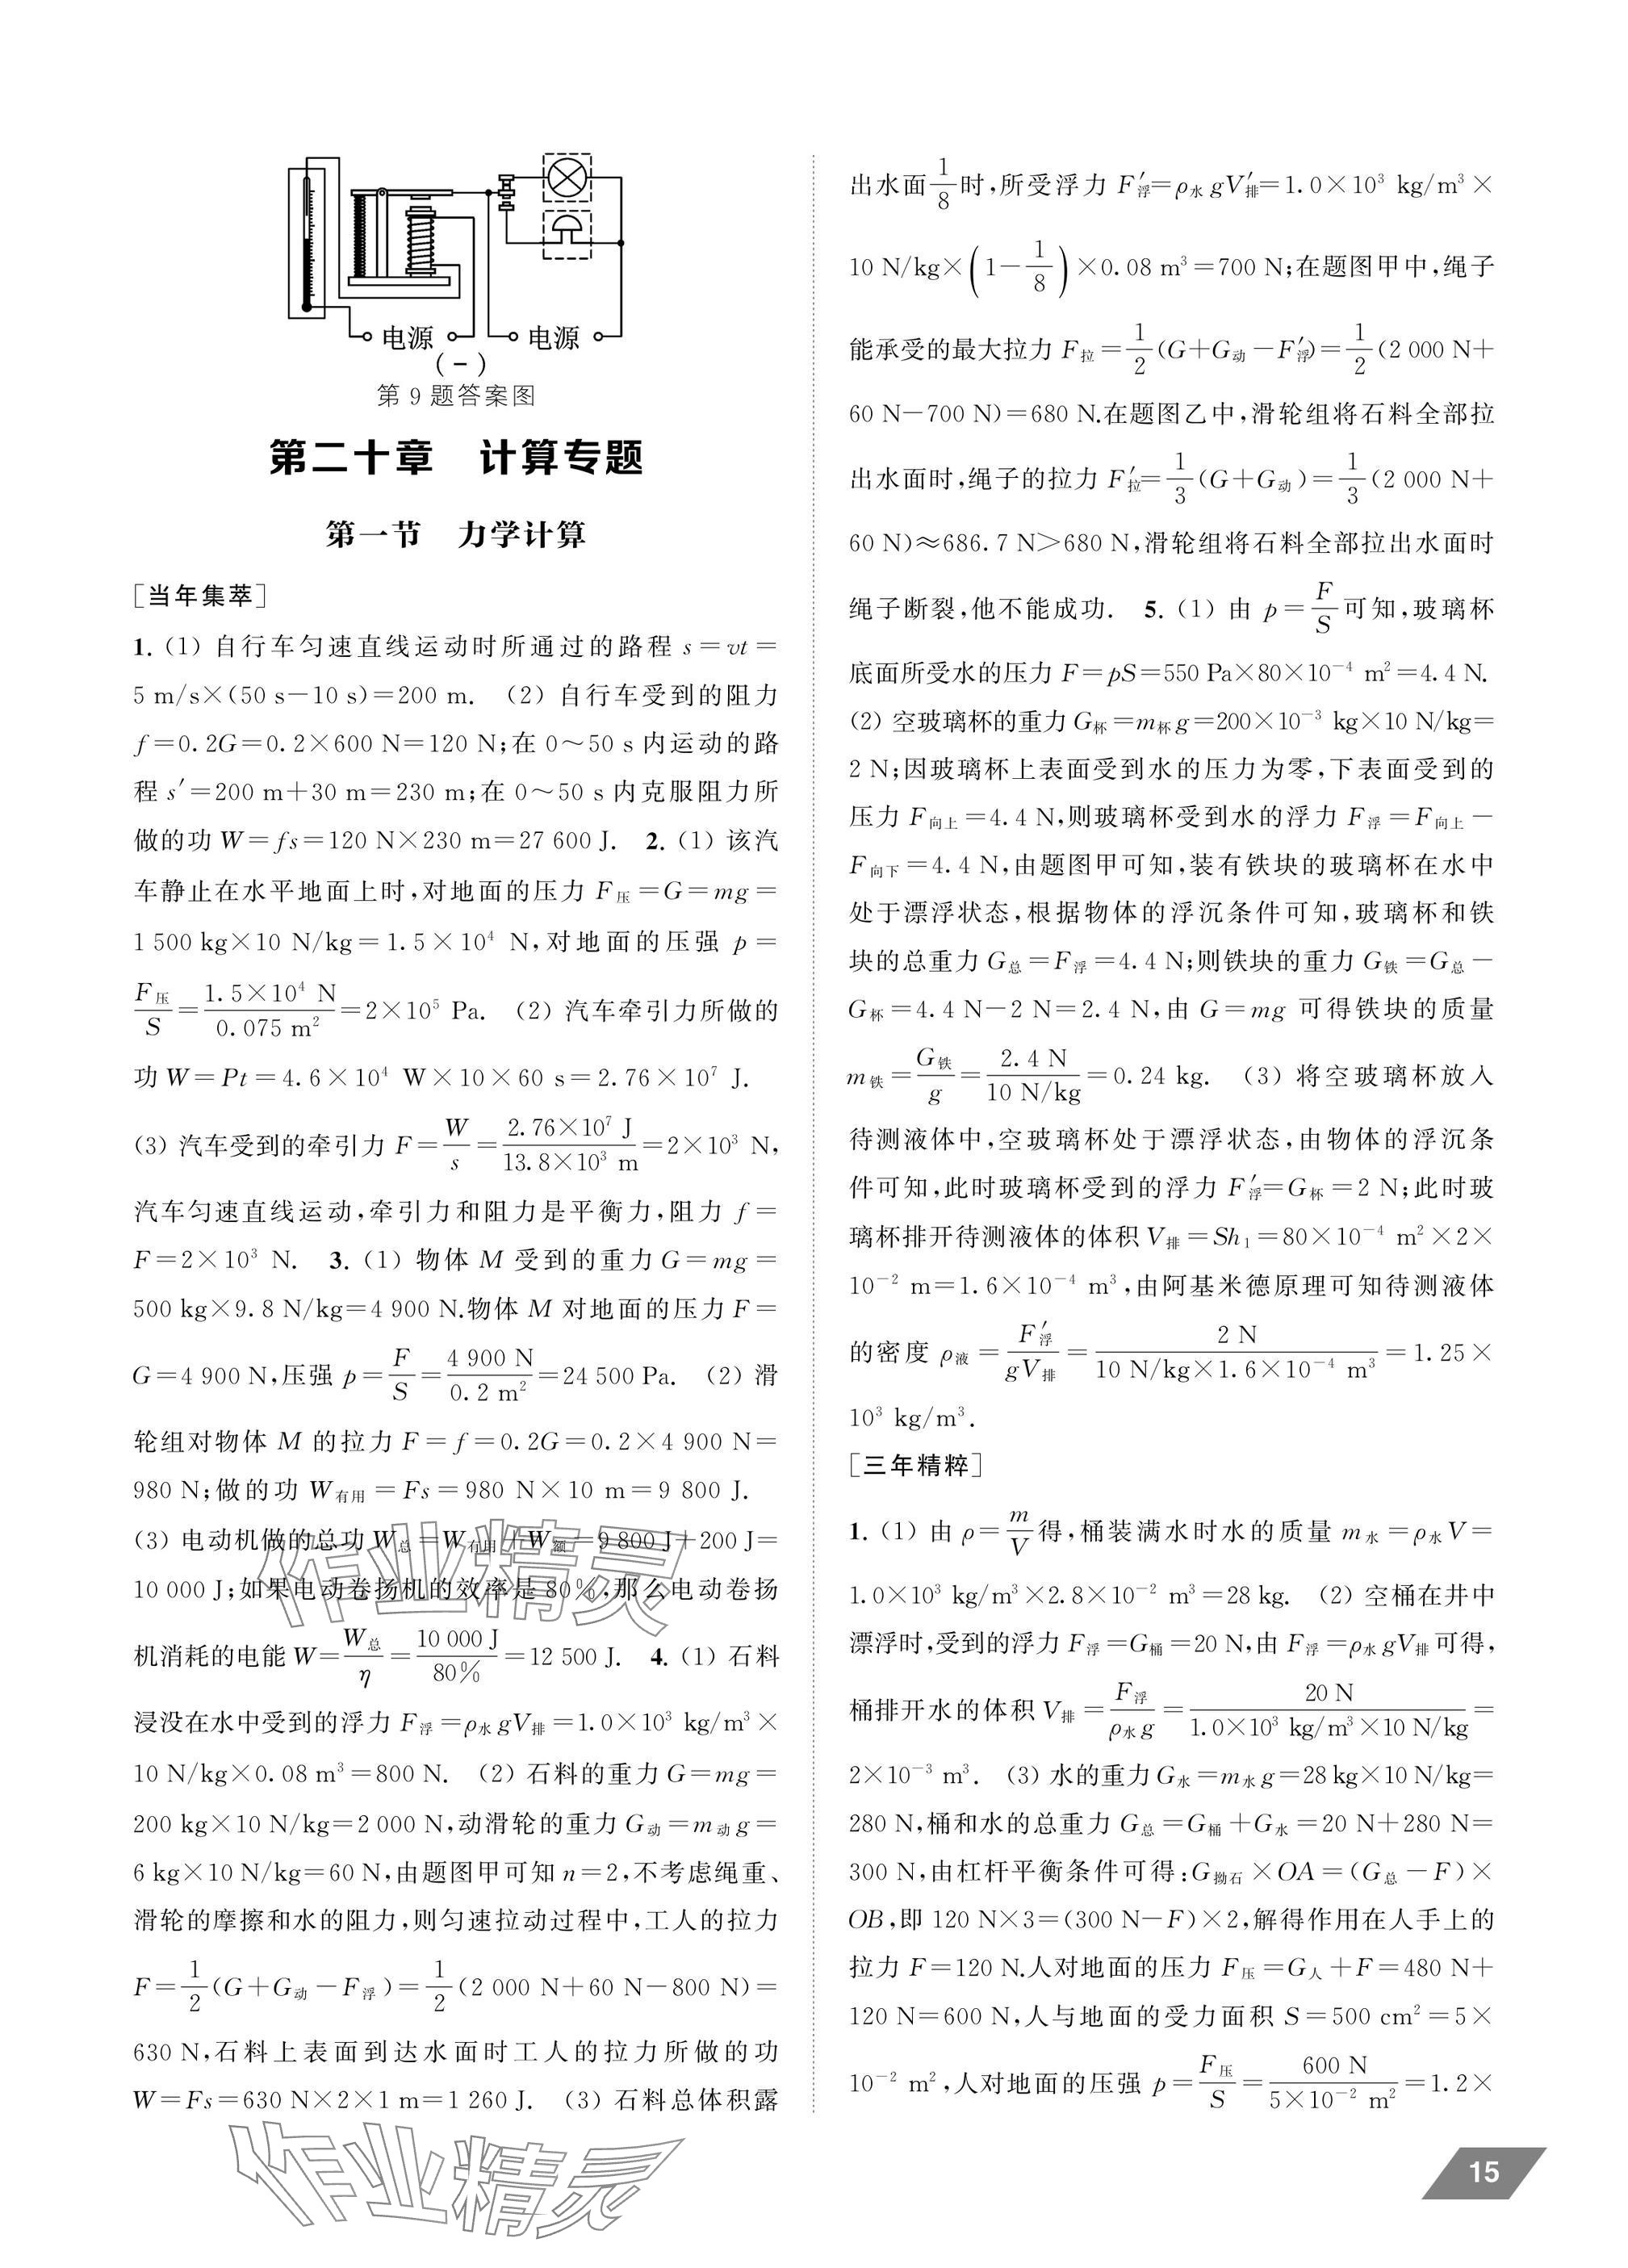 电源 电源
(一)
第 9 题答案图
第二十章 计算专题
第一节 力学计算
[当年集萃]
1. (1) 自行车匀速直线运动时所通过的路程 s=vt=
5 m/s×(50 s−10 s)=200 m. (2) 自行车受到的阻力
f=0.2G=0.2×600 N=120 N;在 0～50 s 内运动的路
程 s′=200 m+30 m=230 m;在 0～50 s 内克服阻力所
做的功 W=fs=120 N×230 m=27 600 J. 2. (1) 该汽
车静止在水平地面上时,对地面的压力 F压=G=mg=
1 500 kg×10 N/kg=1.5×10⁴ N,对地面的压强 p=
F压/S=1.5×10⁴ N/0.075 m²=2×10⁵ Pa. (2) 汽车牵引力所做的
功 W=Pt=4.6×10⁴ W×10×60 s=2.76×10⁷ J.
(3) 汽车受到的牵引力 F=W/s=2.76×10⁷ J/13.8×10³ m=2×10³ N,
汽车匀速直线运动,牵引力和阻力是平衡力,阻力 f=
F=2×10³ N. 3. (1) 物体 M 受到的重力 G=mg=
500 kg×9.8 N/kg=4 900 N.物体 M 对地面的压力 F=
G=4 900 N,压强 p=F/S=4 900 N/0.2 m²=24 500 Pa. (2) 滑
轮组对物体 M 的拉力 F=f=0.2G=0.2×4 900 N=
980 N;做的功 W有用=Fs=980 N×10 m=9 800 J.
(3) 电动机做的总功 W总=W有用+W额=9 800 J+200 J=
10 000 J;如果电动卷扬机的效率是 80%,那么电动卷扬
机消耗的电能 W=W总/η=10 000 J/80%=12 500 J. 4. (1) 石料
浸没在水中受到的浮力 F浮=ρ水gV排=1.0×10³ kg/m³×
10 N/kg×0.08 m³=800 N. (2) 石料的重力 G=mg=
200 kg×10 N/kg=2 000 N,动滑轮的重力 G动=m动g=
6 kg×10 N/kg=60 N,由题图甲可知 n=2,不考虑绳重、
滑轮的摩擦和水的阻力,则匀速拉动过程中,工人的拉力
F=1/2(G+G动−F浮)=1/2(2 000 N+60 N−800 N)=
630 N,石料上表面到达水面时工人的拉力所做的功
W=Fs=630 N×2×1 m=1 260 J. (3) 石料总体积露
出水面1/8时,所受浮力 F′浮=ρ水gV′排=1.0×10³ kg/m³×
10 N/kg×(1−1/8)×0.08 m³=700 N;在题图甲中,绳子
能承受的最大拉力 F拉=1/2(G+G动−F′浮)=1/2(2 000 N+
60 N−700 N)=680 N.在题图乙中,滑轮组将石料全部拉
出水面时,绳子的拉力 F′拉=1/3(G+G动)=1/3(2 000 N+
60 N)≈686.7 N>680 N,滑轮组将石料全部拉出水面时
绳子断裂,他不能成功. 5. (1) 由 p=F/S可知,玻璃杯
底面所受水的压力 F=pS=550 Pa×80×10⁻⁴ m²=4.4 N.
(2) 空玻璃杯的重力 G杯=m杯g=200×10⁻³ kg×10 N/kg=
2 N;因玻璃杯上表面受到水的压力为零,下表面受到的
压力 F向上=4.4 N,则玻璃杯受到水的浮力 F浮=F向上−
F向下=4.4 N,由题图甲可知,装有铁块的玻璃杯在水中
处于漂浮状态,根据物体的浮沉条件可知,玻璃杯和铁
块的总重力 G总=F浮=4.4 N;则铁块的重力 G铁=G总−
G杯=4.4 N−2 N=2.4 N,由 G=mg 可得铁块的质量
m铁=G铁/g=2.4 N/10 N/kg=0.24 kg. (3) 将空玻璃杯放入
待测液体中,空玻璃杯处于漂浮状态,由物体的浮沉条
件可知,此时玻璃杯受到的浮力 F′浮=G杯=2 N;此时玻
璃杯排开待测液体的体积 V排=Sh₁=80×10⁻⁴ m²×2×
10⁻² m=1.6×10⁻⁴ m³,由阿基米德原理可知待测液体
的密度 ρ液=F′浮/gV排=2 N/10 N/kg×1.6×10⁻⁴ m³=1.25×
10³ kg/m³.
[三年精粹]
1. (1) 由 ρ=m/V得,桶装满水时水的质量 m水=ρ水V=
1.0×10³ kg/m³×2.8×10⁻² m³=28 kg. (2) 空桶在井中
漂浮时,受到的浮力 F浮=G桶=20 N,由 F浮=ρ水gV排可得,
桶排开水的体积 V排=F浮/ρ水g=20 N/1.0×10³ kg/m³×10 N/kg=
2×10⁻³ m³. (3) 水的重力 G水=m水g=28 kg×10 N/kg=
280 N,桶和水的总重力 G总=G桶+G水=20 N+280 N=
300 N,由杠杆平衡条件可得:G拗石×OA=(G总−F)×
OB,即 120 N×3=(300 N−F)×2,解得作用在人手上的
拉力 F=120 N.人对地面的压力 F压=G人+F=480 N+
120 N=600 N,人与地面的受力面积 S=500 cm²=5×
10⁻² m²,人对地面的压强 p=F压/S=600 N/5×10⁻² m²=1.2×
作业精灵
作业精灵
15